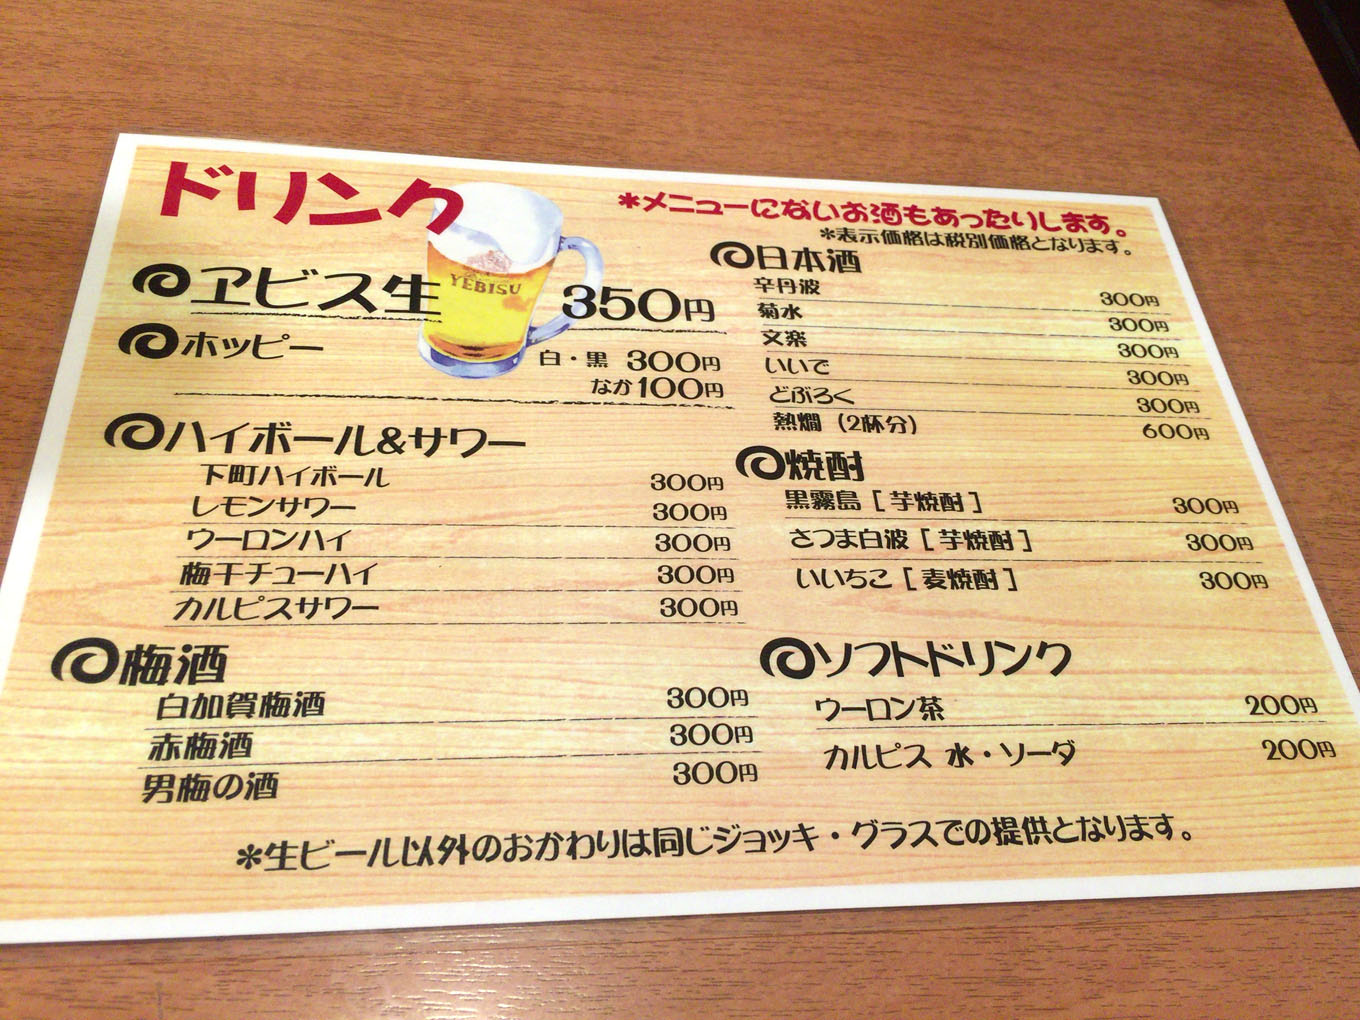 ドリンク
*メニューにないお酒もあったりします。
*表示価格は税別価格となります。
ヱビス生 350円
YEBISU
ホッピー
白・黒 300円
なか100円
ハイボール&サワー
下町ハイボール 300円
レモンサワー 300円
ウーロンハイ 300円
梅干チューハイ 300円
カルピスサワー 300円
梅酒
白加賀梅酒 300円
赤梅酒 300円
男梅の酒 300円
日本酒
辛丹波 300円
菊水 300円
文楽 300円
いいで 300円
どぶろく 300円
熱燗(2杯分) 600円
焼酎
黒霧島[芋焼酎] 300円
さつま白波[芋焼酎] 300円
いいちこ[麦焼酎] 300円
ソフトドリンク
ウーロン茶 200円
カルピス 水・ソーダ 200円
*生ビール以外のおかわりは同じジョッキ・グラスでの提供となります。